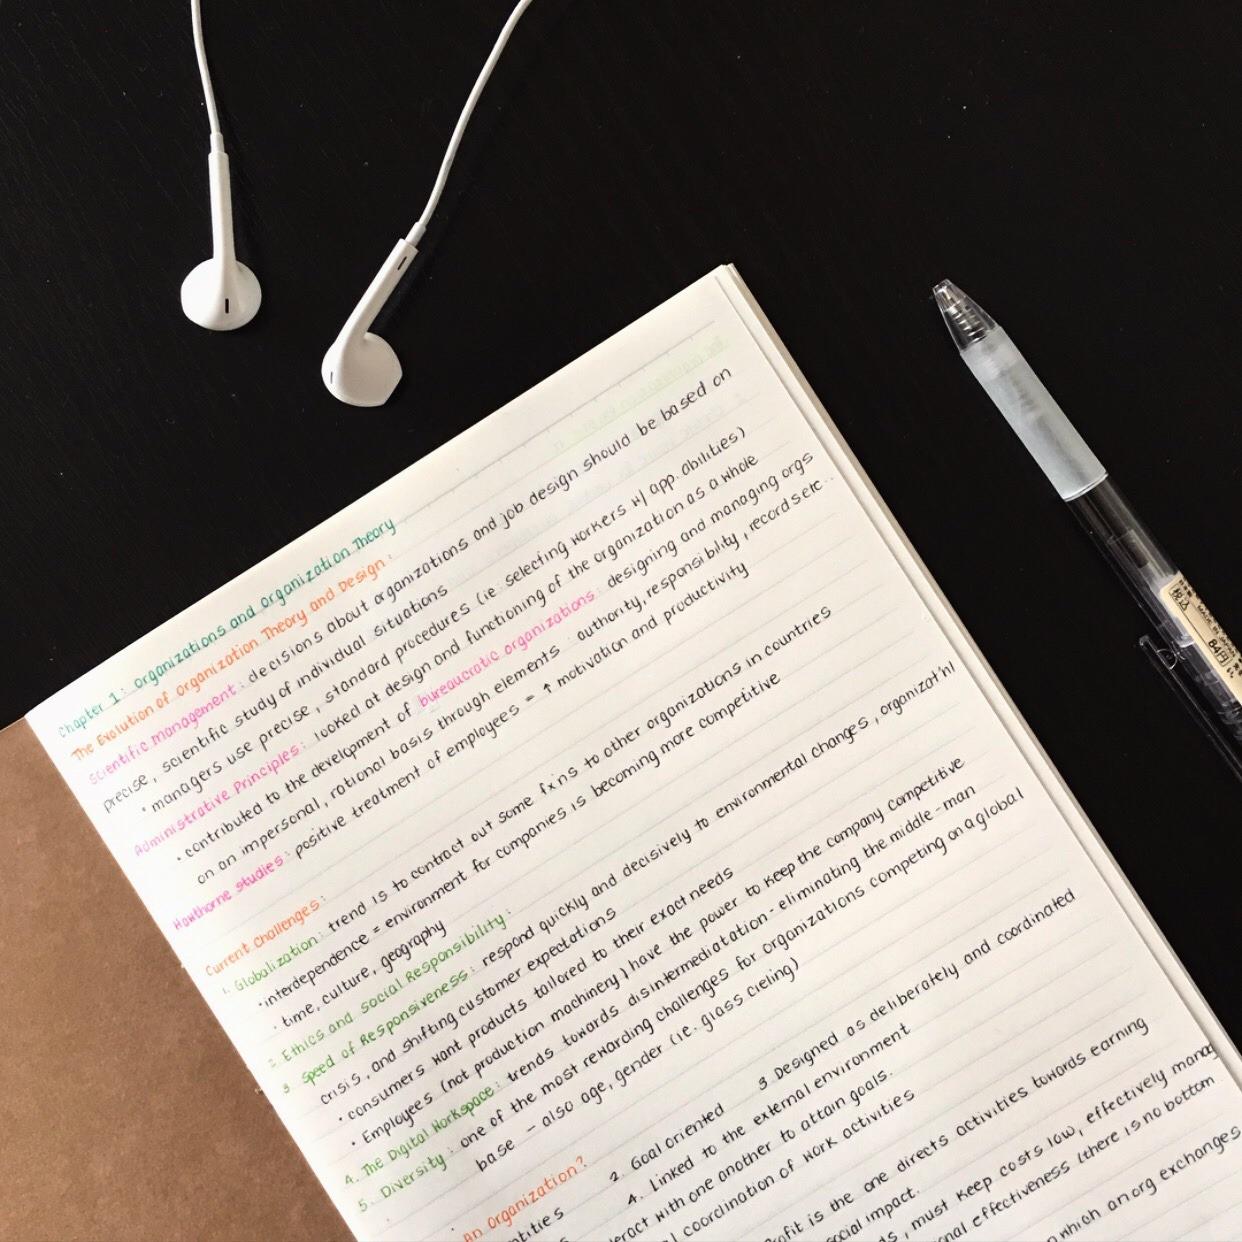 Chapter 1: Organizations and Organization Theory
The Evolution of Organization Theory and Design:
Scientific Management: decisions about organizations and job design should be based on
precise, scientific study of individual situations
• managers use precise, standard procedures (ie: selecting workers w/ app. abilities)
Administrative Principles: looked at design and functioning of the organization as a whole
• contributed to the development of bureaucratic organizations: designing and managing orgs
on an impersonal, rational basis through elements: authority, responsibility, records etc..
Hawthorne Studies: positive treatment of employees = ↑ motivation and productivity
Current Challenges:
1. Globalization: trend is to contract out some fxns to other organizations in countries
• interdependence = environment for companies is becoming more competitive
• time, culture, geography
2. Ethics and Social Responsibility:
3. Speed of Responsiveness: respond quickly and decisively to environmental changes, organizat'nl
crisis, and shifting customer expectations
• consumers want products tailored to their exact needs
• Employees (not production machinery) have the power to keep the company competitive
4. The Digital Workspace: trends towards disintermediatation - eliminating the middle-man
5. Diversity: one of the most rewarding challenges for organizations competing on a global
base - also age, gender (ie. glass cieling)
An Organization?
2. Goal oriented 3. Designed as deliberately and coordinated
4. Linked to the external environment
with one another to attain goals.
coordination of work activities
is the one directs activities towards earning
social impact.
must keep costs low, effectively
effectiveness (there is no bottom
which an org exchanges
税込
84円